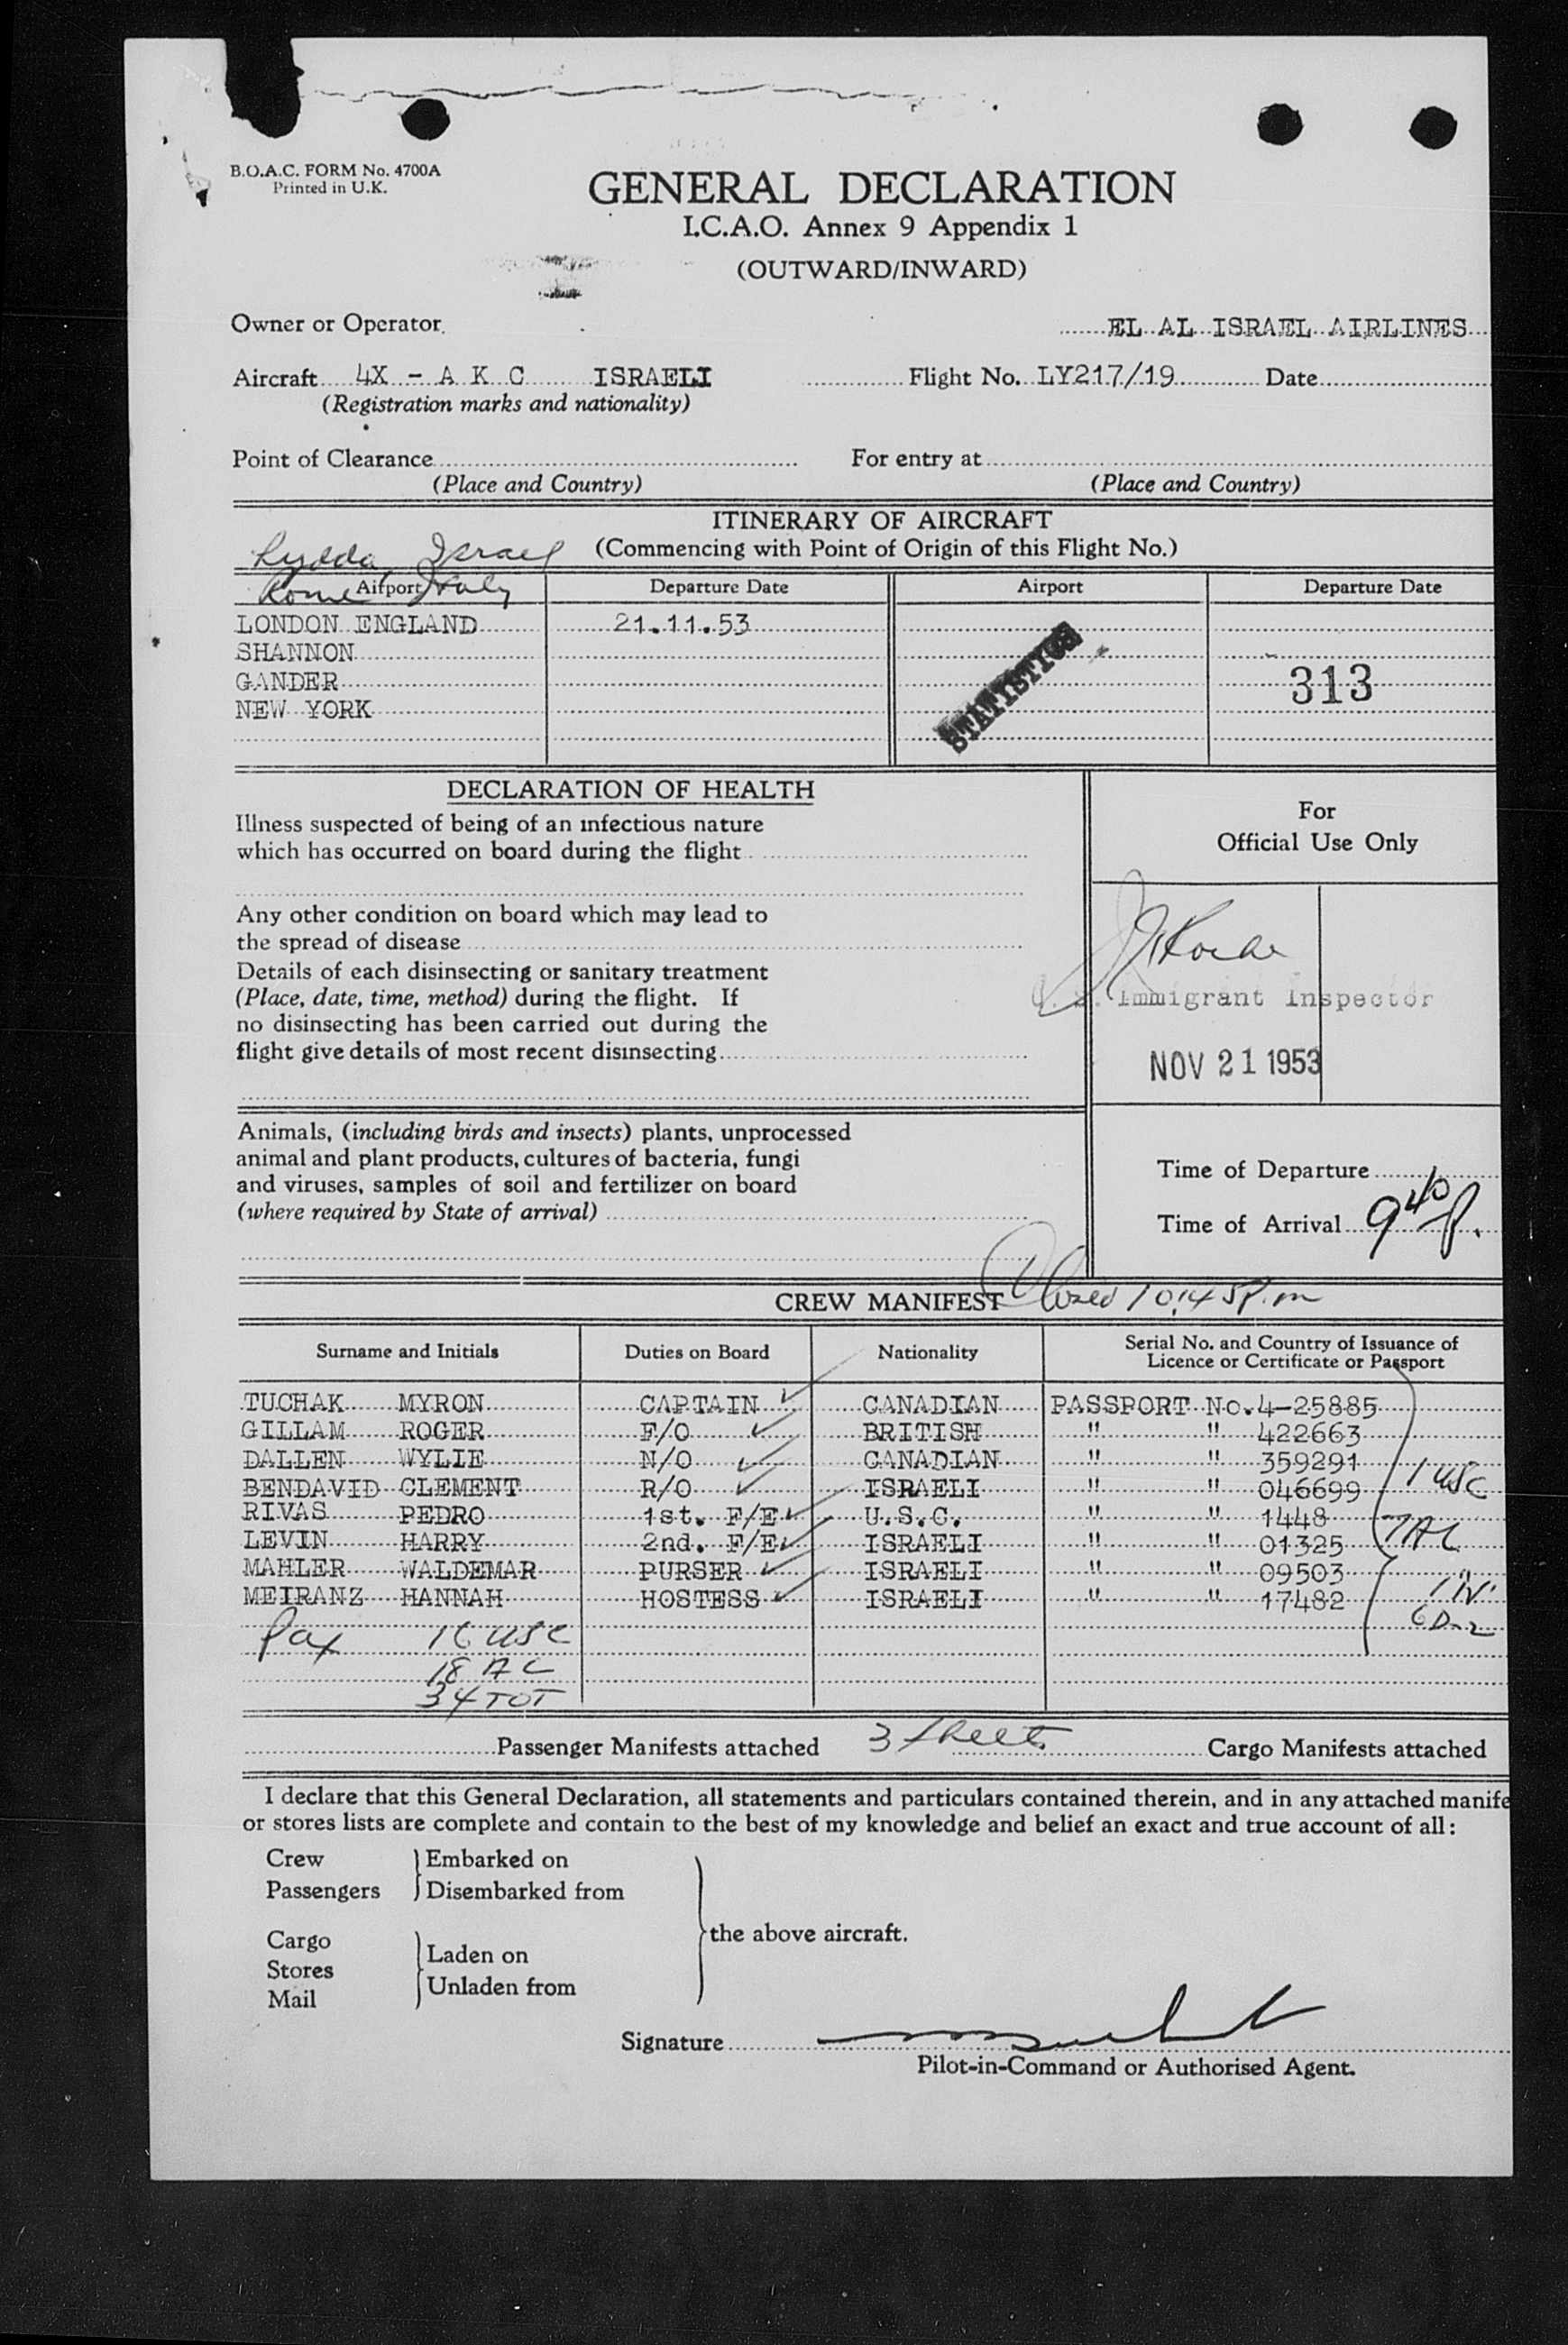 B.O.A.C. FORM No. 4700A
Printed in U.K.
GENERAL DECLARATION
I.C.A.O. Annex 9 Appendix 1
(OUTWARD/INWARD)
Owner or Operator EL AL ISRAEL AIRLINES
Aircraft 4X - A K C ISRAELI Flight No. LY217/19 Date
(Registration marks and nationality)
Point of Clearance For entry at
(Place and Country) (Place and Country)
ITINERARY OF AIRCRAFT
Lydda, Israel (Commencing with Point of Origin of this Flight No.)
Rome Italy
Airport Departure Date Airport Departure Date
LONDON ENGLAND 21.11.53
SHANNON
GANDER
NEW YORK
STATISTICS
313
DECLARATION OF HEALTH
Illness suspected of being of an infectious nature
which has occurred on board during the flight
Any other condition on board which may lead to
the spread of disease
Details of each disinsecting or sanitary treatment
(Place, date, time, method) during the flight. If
no disinsecting has been carried out during the
flight give details of most recent disinsecting
For
Official Use Only
Immigrant Inspector
NOV 21 1953
Animals, (including birds and insects) plants, unprocessed
animal and plant products, cultures of bacteria, fungi
and viruses, samples of soil and fertilizer on board
(where required by State of arrival)
Time of Departure
Time of Arrival 9 40 P.
CREW MANIFEST Closed 10.45 P.m
Surname and Initials Duties on Board Nationality Serial No. and Country of Issuance of
Licence or Certificate or Passport
TUCHAK MYRON CAPTAIN CANADIAN PASSPORT No. 4-25885
GILLAM ROGER F/O BRITISH " " 422663
DALLEN WYLIE N/O CANADIAN " " 359291
BENDAVID CLEMENT R/O ISRAELI " " 046699 1 USC
RIVAS PEDRO 1st. F/E U.S.C. " " 1448
LEVIN HARRY 2nd. F/E ISRAELI " " 01325 7 AL
MAHLER WALDEMAR PURSER ISRAELI " " 09503
MEIRANZ HANNAH HOSTESS ISRAELI " " 17482
6 D-2
Pax 16 USC
18 AL
34 TOT
Passenger Manifests attached 3 sheets Cargo Manifests attached
I declare that this General Declaration, all statements and particulars contained therein, and in any attached manife
or stores lists are complete and contain to the best of my knowledge and belief an exact and true account of all:
Crew Embarked on
Passengers Disembarked from
the above aircraft.
Cargo
Stores Laden on
Mail Unladen from
Signature
Pilot-in-Command or Authorised Agent.